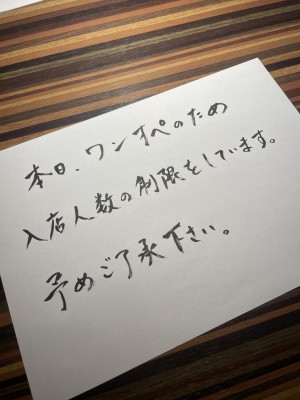 本日、ワンオペのため
入店人数の制限をしています。
予めご了承下さい。